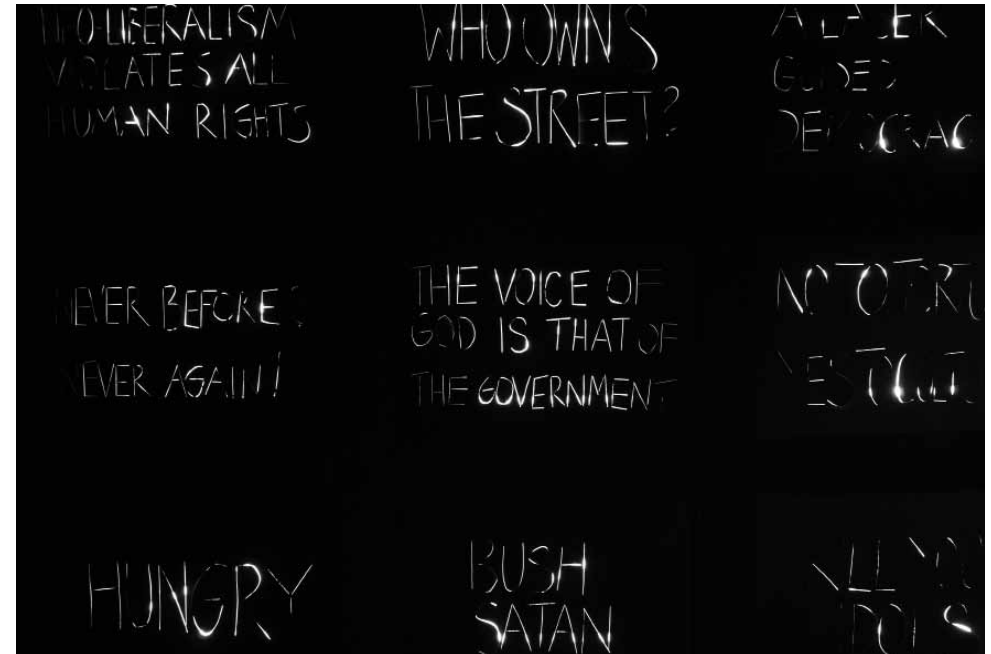 NEO-LIBERALISM
VIOLATES ALL
HUMAN RIGHTS
WHO OWNS
THE STREET?
GUIDED
DEMOCRAC
NEVER BEFORE?
NEVER AGAIN!
THE VOICE OF
GOD IS THAT OF
THE GOVERNMENT
NO TO
YES TO
HUNGRY
BUSH
SATAN